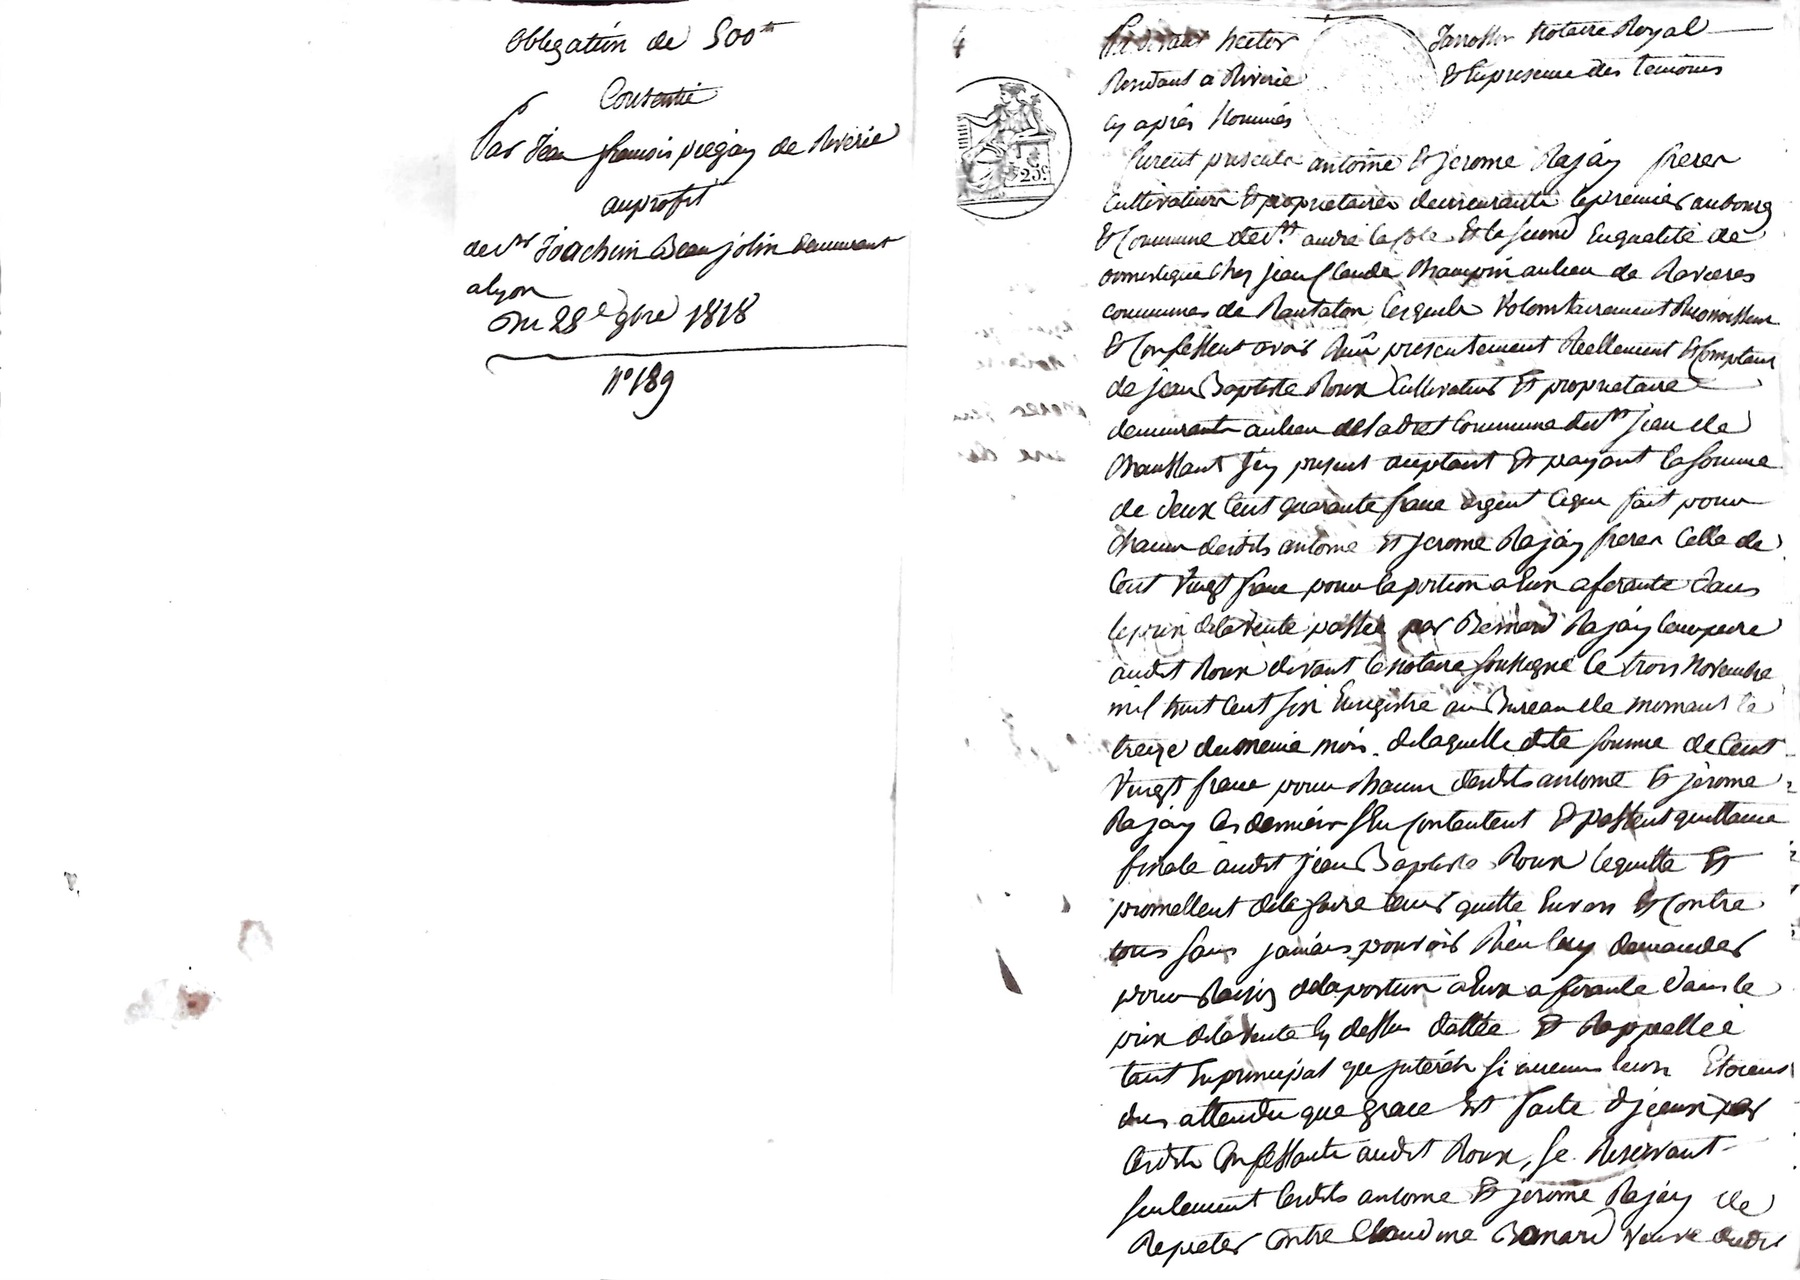 Obligation de 500 tt
Consentie
Par Jean françois piegay de Riverie
auprofit
de Sr Joachim Beaujolin demeurant
a lyon
Du 28e 9bre 1818
N° 189
4
Par devant hector Janossin Notaire Royal
Residant a Riverie Et En presence des temoins
cy après Nommés
furent presents antoine Et jerome Rajäy freres
Cultivateurs Et proprietaires demeurants le premier au bourg
Et Commune de St. andré la Cote Et le second En qualité de
domestique chez jean Claude au lieu de Ravieres
communes de Rontalon lesquels Volontairement Reconoissent
Et Confessent avoir Reçu presentement Réellement Et Comptant
de jean Baptiste Roux Cultivateur Et proprietaire
demeurants au lieu de Commune de St. jean de
Chaussant icy present acceptant Et payant la somme
de deux Cent quarante franc argent Ce qui fait pour
chacun desdits antoine Et jerome Rajäy freres Celle de
Cent Vingt franc pour la portion a Eux aferante dans
le prix de la Vente passée par Bernard Rajäy leur pere
audit Roux devant le Notaire soussigné le trois Novembre
mil huit Cent six Enregistré au Bureau de mornant le
treize du meme mois. de laquelle dite somme de Cent
Vingt franc pour chacun desdits antoine Et jérome
Rajäy Ces derniers s'En Contentent Et passent quittance
finale audit jean Baptiste Roux le quitte Et
promettent de le faire tenir quitte Envers Et Contre
tous sans jamais pouvoir Rien luy demander
pour Raison de la portion a Eux aferante dans le
prix de la Vente Cy dessus dattée Et Rappellée
tant En principal que jnteréts si aucuns leurs Etoient
dus attendu que grace Est faite d'jceux par
lesdits Confessants audit Roux, se Réservant
seulement lesdits antoine Et jerome Rajäy de
Repeter Contre Claudine Bonard Veuve dudit